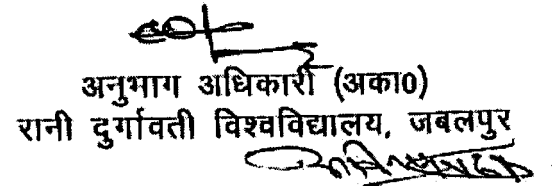 अनुभाग अधिकारी (अका0)
रानी दुर्गावती विश्वविद्यालय, जबलपुर